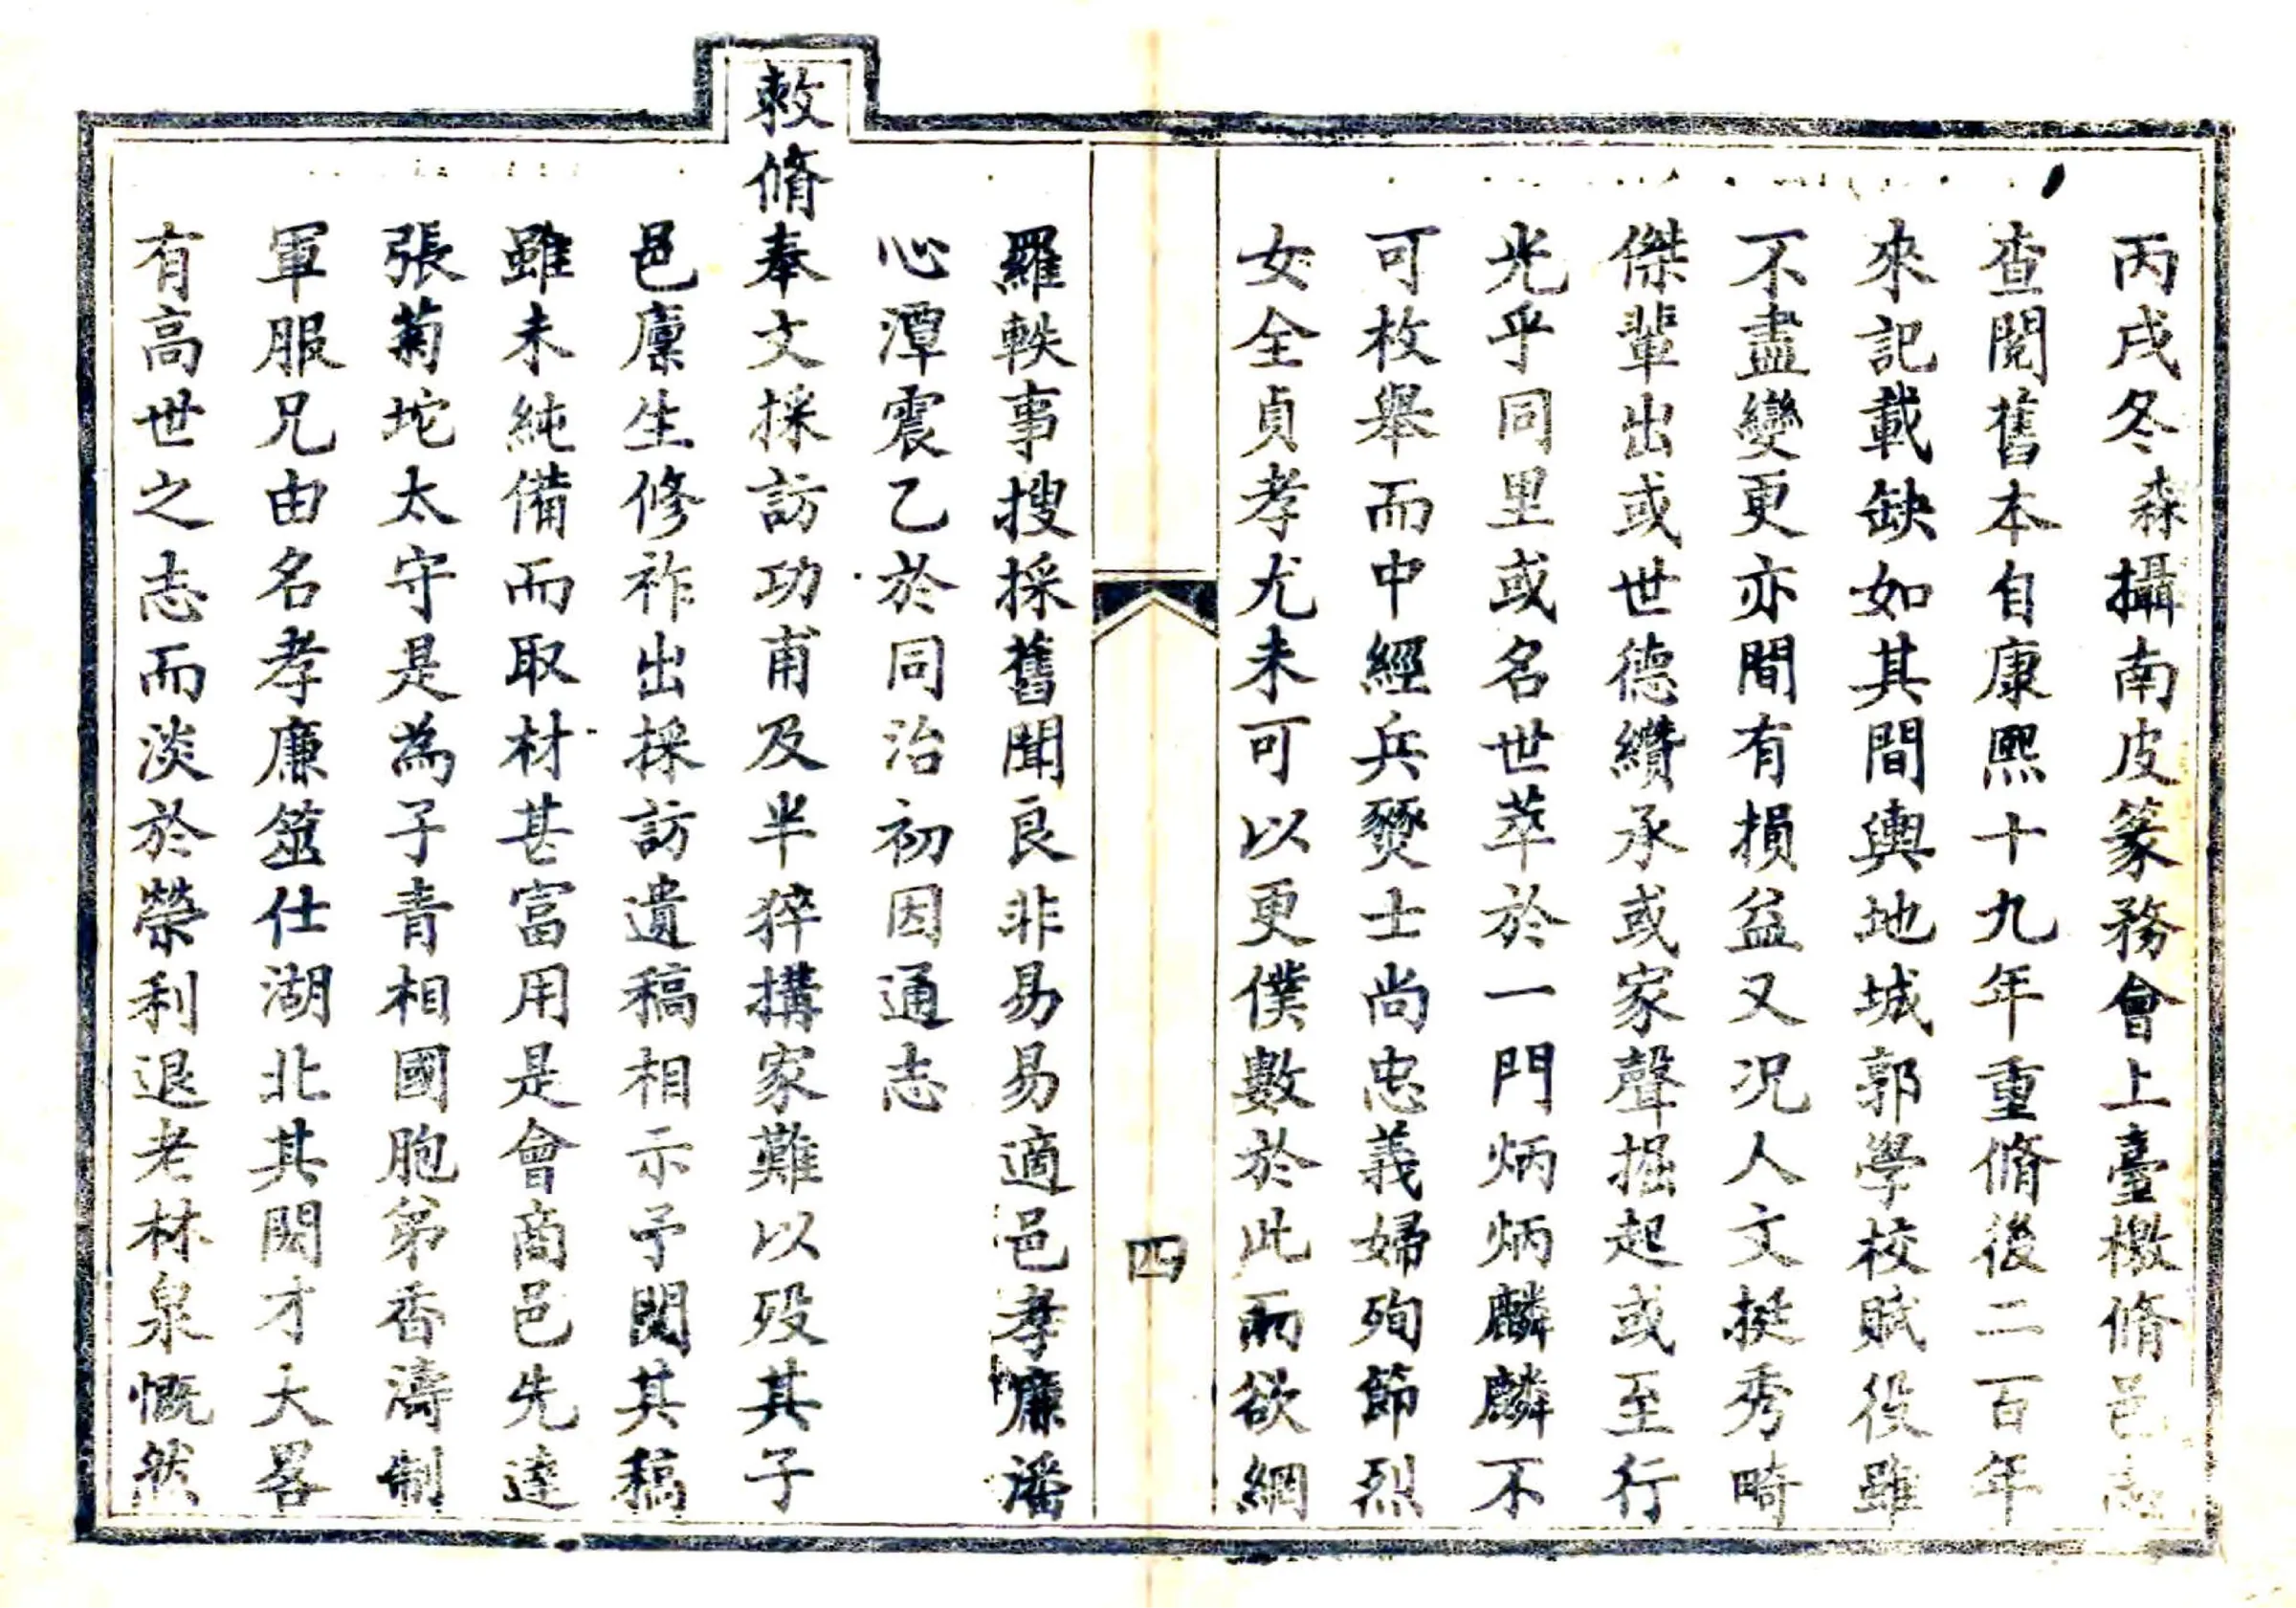 丙戌冬森攝南皮篆務會上臺檄脩邑志
查閱舊本自康熙十九年重脩後二百年
來記載缺如其間輿地城郭學校賦役雖
不盡變更亦間有損益又況人文挺秀畸
傑輩出或世德纘承或家聲掘起或至行
光乎同里或名世萃於一門炳炳麟麟不
可枚舉而中經兵燹士尚忠義婦殉節烈
女全貞孝尤未可以更僕數於此而欲網
四
羅軼事搜採舊聞良非易易適邑孝廉潘
心潭震乙於同治初因通志
敕脩奉文採訪功甫及半猝搆家難以歿其子
邑廪生修祚出採訪遺稿相示予閱其稿
雖未純備而取材甚富用是會商邑先達
張菊坨太守是為子青相國胞弟香濤制
軍服兄由名孝廉筮仕湖北其閎才大畧
有高世之志而淡於榮利退老林泉慨然